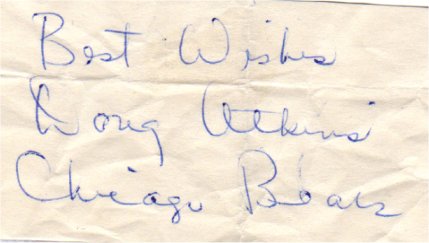 Best Wishes
Doug Atkins
Chicago Bears